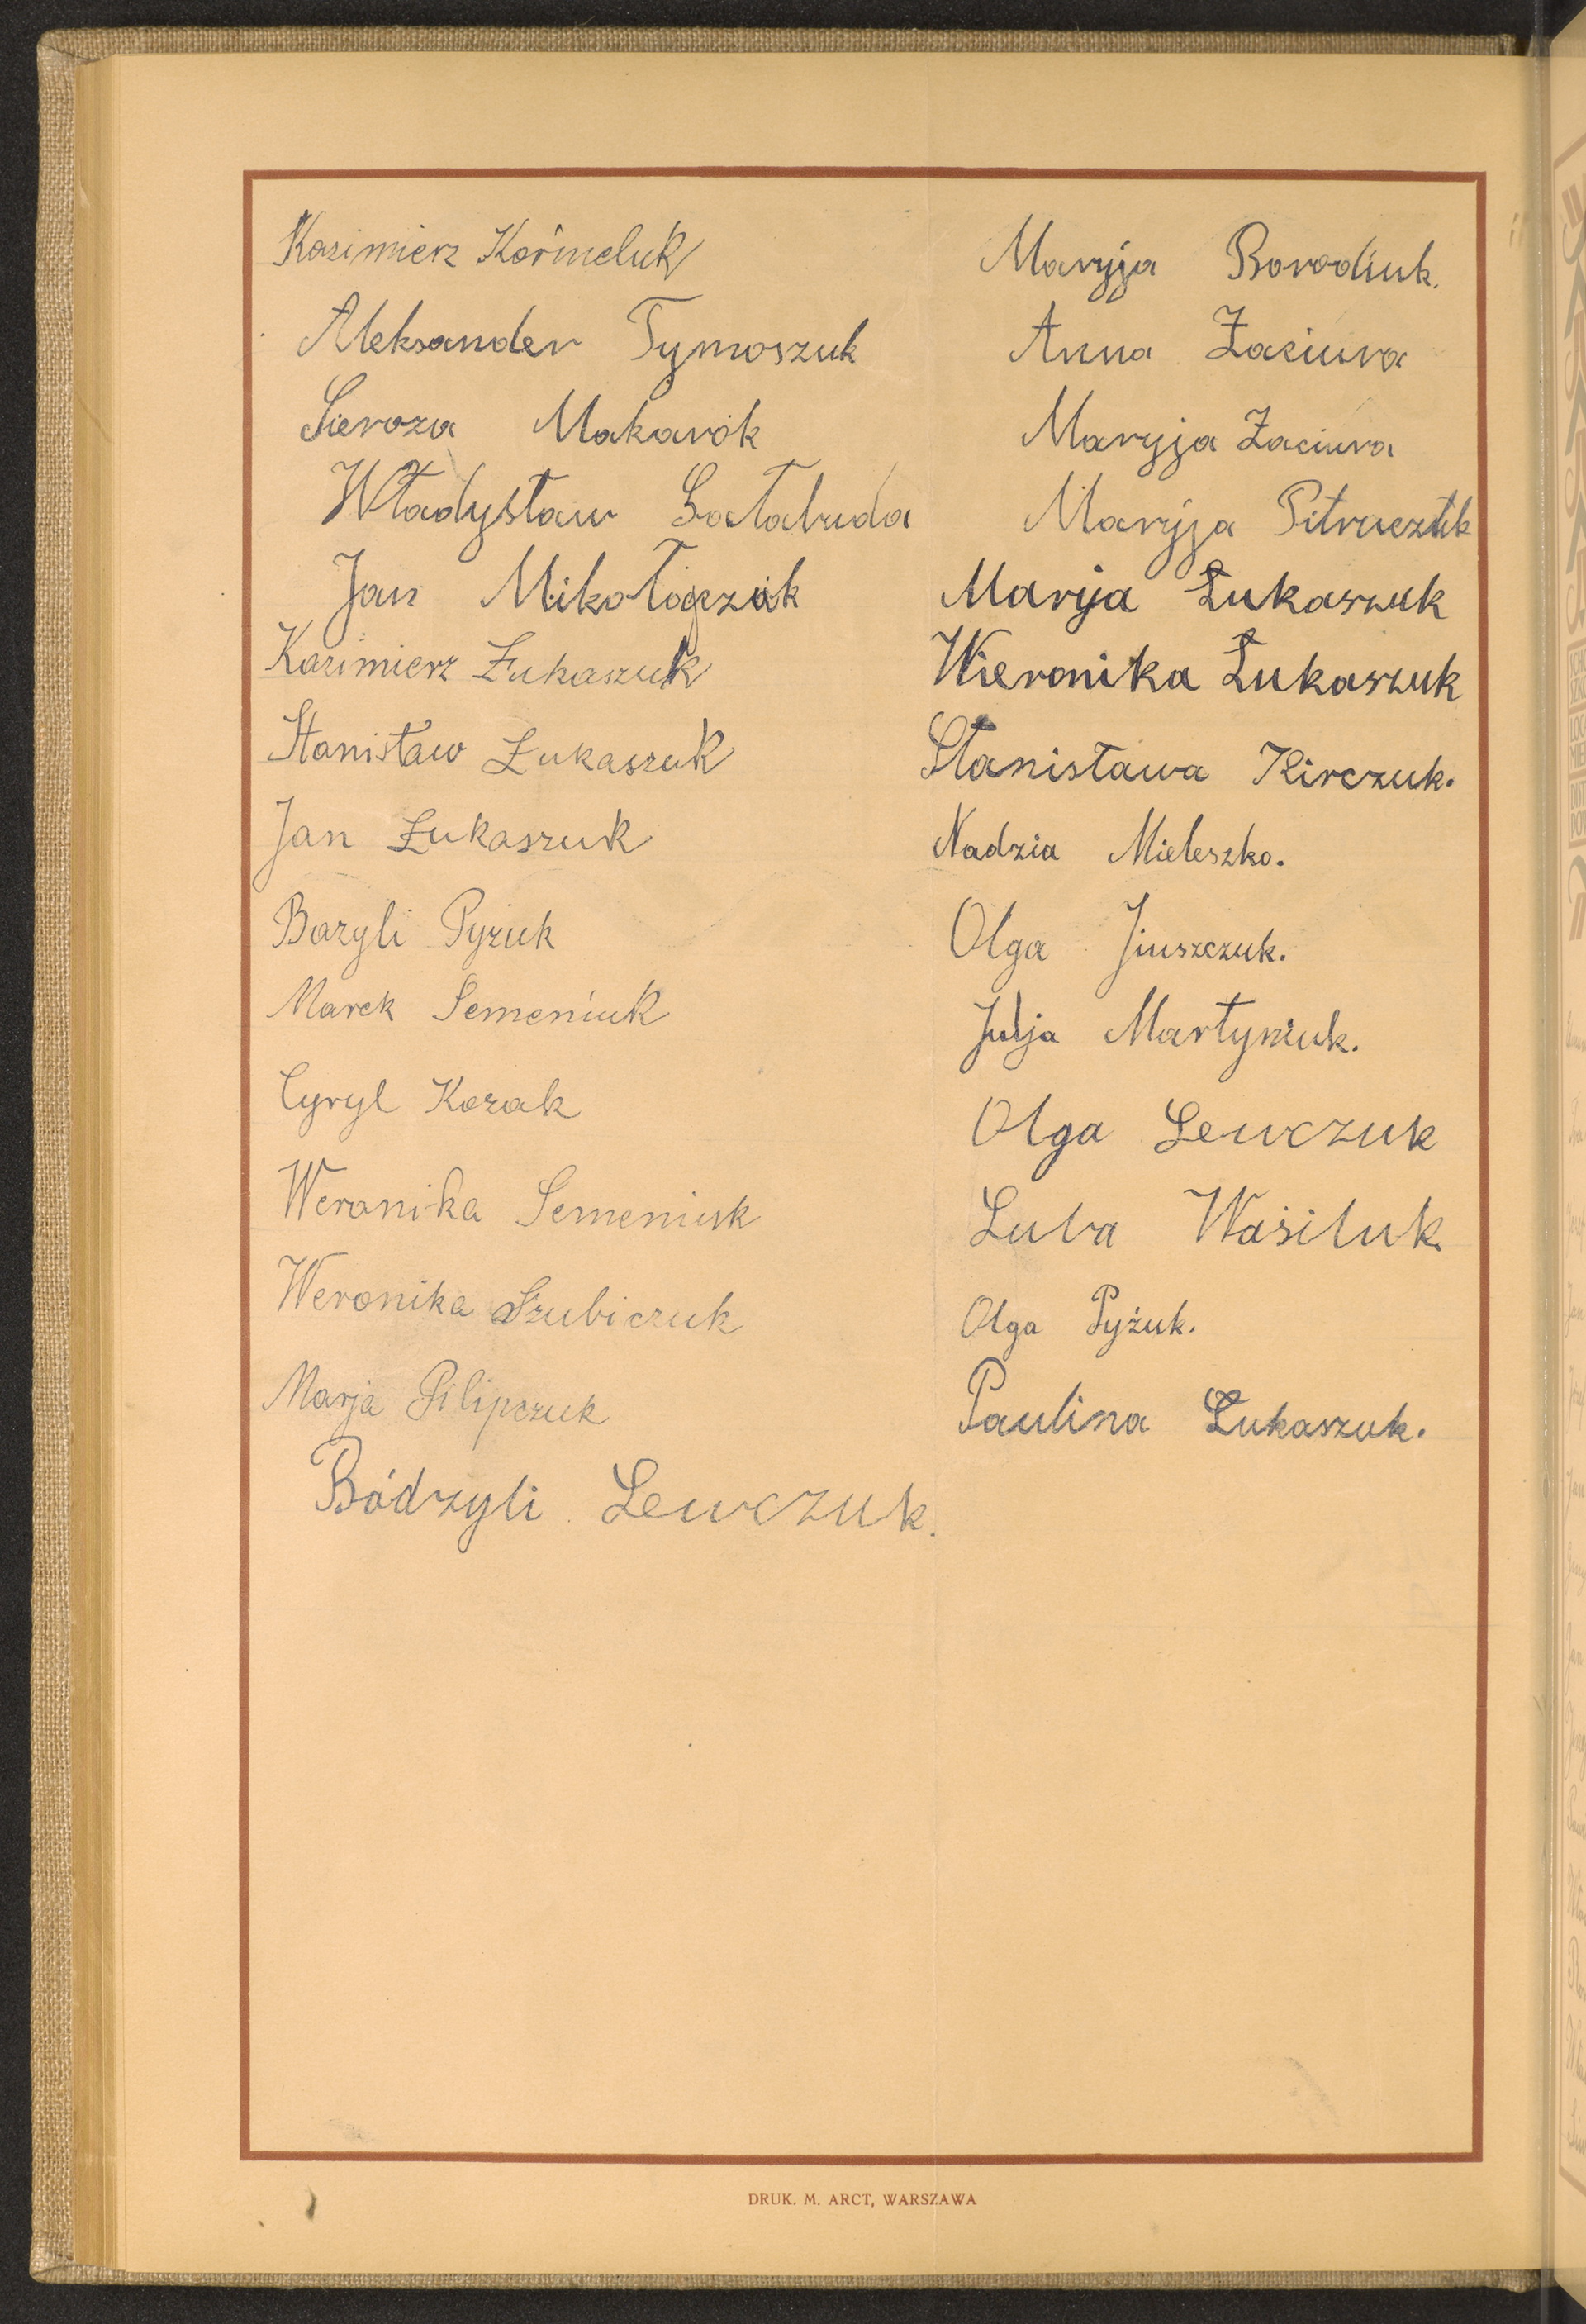 Kazimierz Kormeluk
Aleksander Tymoszuk
Sieroza Makarok
Władysław Sałabuda
Jan Mikołajczak
Kazimierz Łukaszuk
Stanisław Łukaszuk
Jan Łukaszuk
Bazyli Pyżuk
Marek Semeniuk
Cyryl Kozak
Weronika Semeniuk
Weronika Szubiczuk
Marja Pilipczuk
Bódzyli Lewczuk.
Maryja Borodiuk.
Anna Zaciura
Maryja Zaciura
Maryja Pitruczuk
Marija Łukaszuk
Wieronika Łukaszuk
Stanisława Kirczuk.
Nadzia Mieleszko.
Olga Juszczuk.
Julja Martyniuk.
Olga Lewczuk
Luba Wasiluk
Olga Pyżuk.
Paulina Łukaszuk.
DRUK. M. ARCT, WARSZAWA